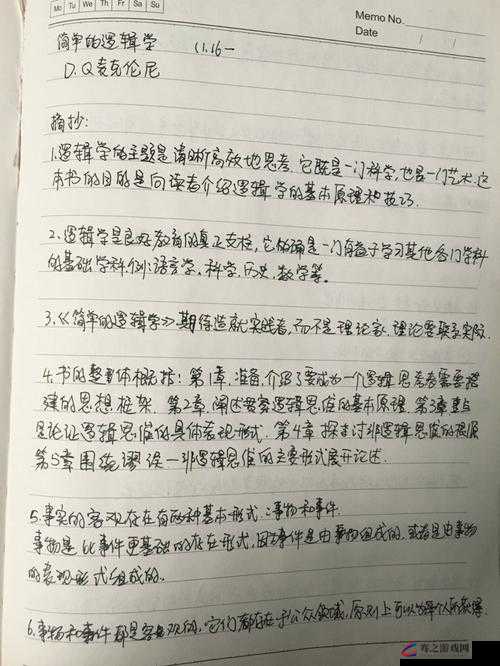 Mo Tu We Th Fr Sa Su
Memo No.
Date / /
简单的逻辑学 (1.16—
D.Q麦克伦尼
摘抄:
1.逻辑学的主题是清晰高效地思考.它既是一门科学,也是一门艺术.这
本书的目的是向读者介绍逻辑学的基本原理和技巧.
2.逻辑学是良好教育的真正支柱,它的确是一门有益于学习其他各门学科
的基础学科.例:语言学、科学,历史,数学等。
3.《简单的逻辑学》期待造就实践者,而不是理论家.理论要联系实际.
4.书的整体相无括:第1章,准备,介绍了要成为一个逻辑思考者需要搭
建的思想框架.第2章,阐述贯穿逻辑思维的基本原理.第3章重点
是论证逻辑思维的具体表现形式.第4章探讨非逻辑思维的根源
第5章围绕谬误一非逻辑思维的主要形式展开论述.
5.事实的客观存在有两种基本形式:事物和事件.
事物是比事件更基础的存在形式,因为事件是由事物组成的,或者是由事物
的表现形式组成的。
6.事物和事件都是客观的,它们都存在于公众领域,原则上可以为每个人所获得.
寒之游戏网